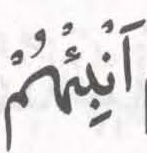 اَنْبِئْهُمْ